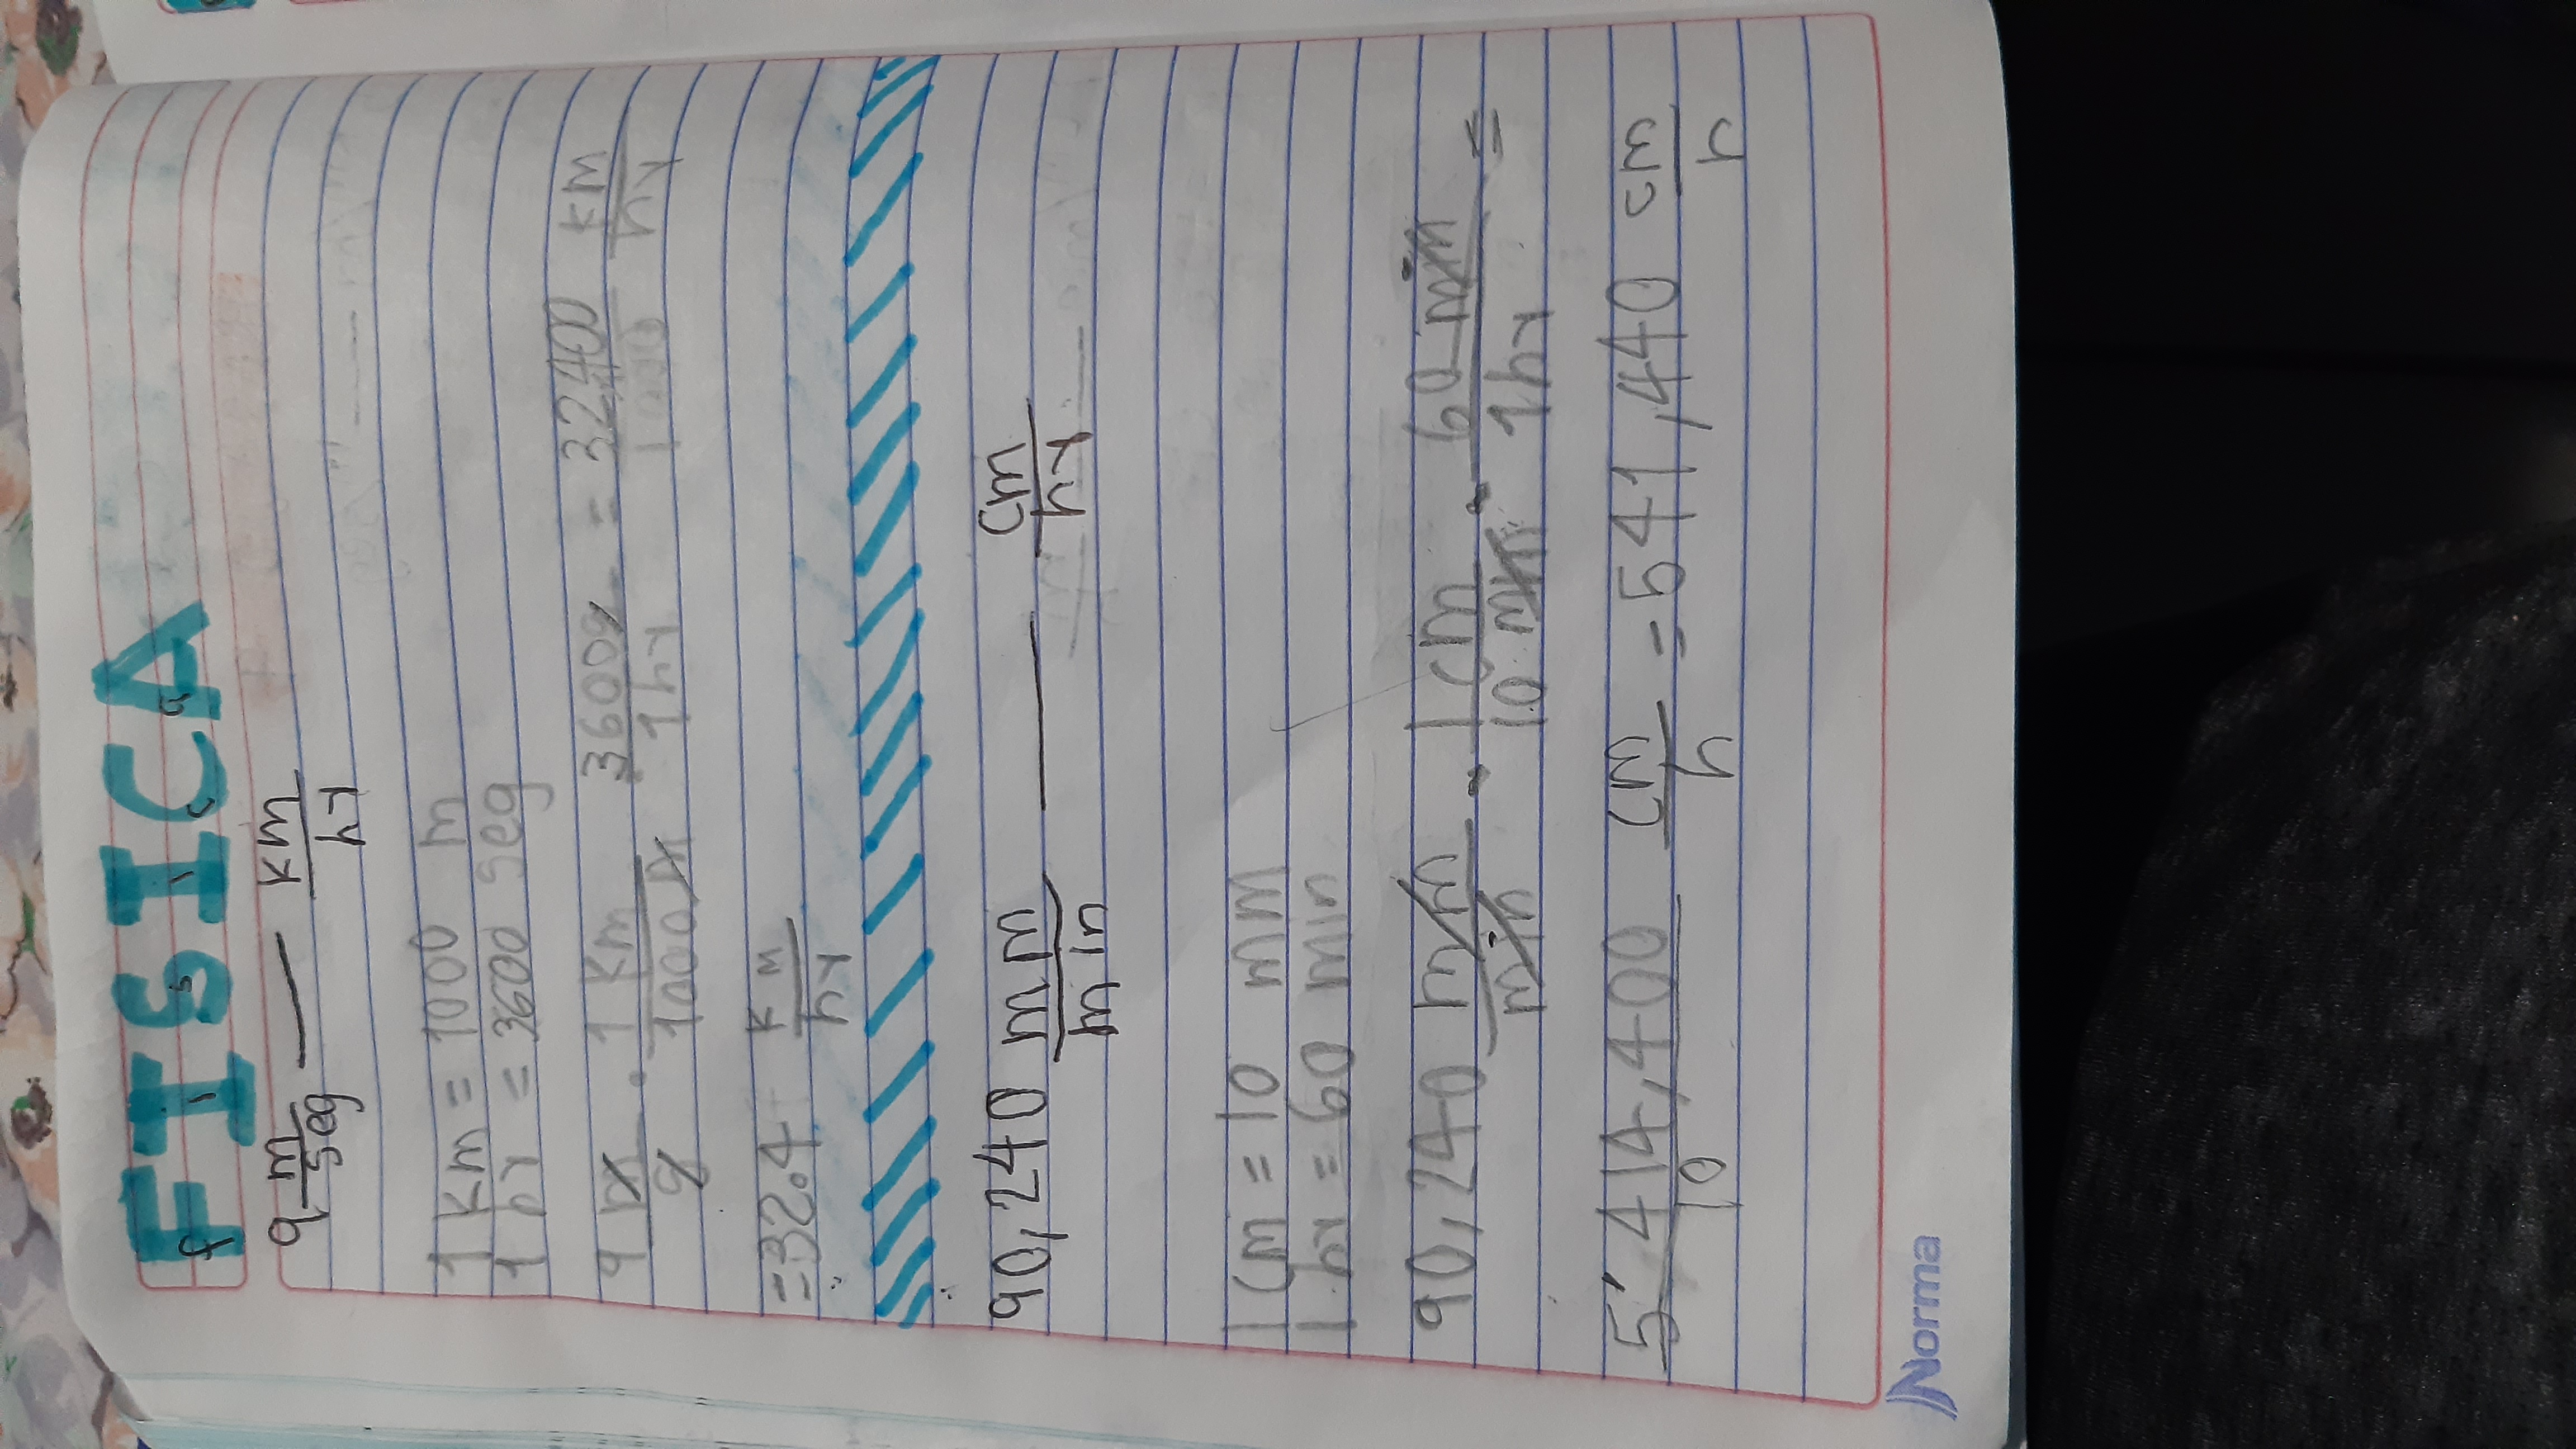 FISICA
fisica
9 m/seg — km/hr
1 km = 1000 m
1 hr = 3600 seg
9 m/s · 1 km/1000 m · 3600 s/1 hr = 32400/1000 km/hr
= 32.4 km/hr
90,240 mm/min — cm/hr
1 cm = 10 mm
1 hr = 60 min
90,240 mm/min · 1 cm/10 mm · 60 min/1 hr =
5'414,400/10 cm/h = 541,440 cm/h
Norma